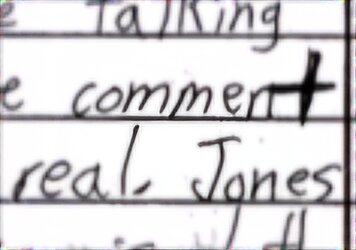 talking
comment
real. Jones